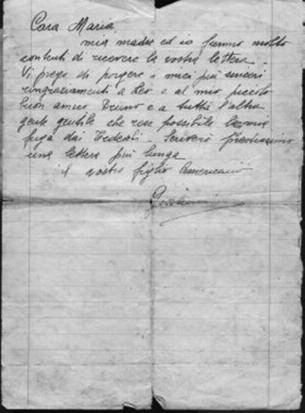 Cara Maria
mia madre ed io fummo molto
contenti di ricevere la vostra lettera.
Vi prego di porgere i miei più sinceri
ringraziamenti a Leo e al mio piccolo
buon amico Bruno e a tutti l'altra
gente gentile che rese possibile la mia
fuga dai Tedeschi. Scriverò prestissimo
una lettera più lunga.
il vostro figlio Americano